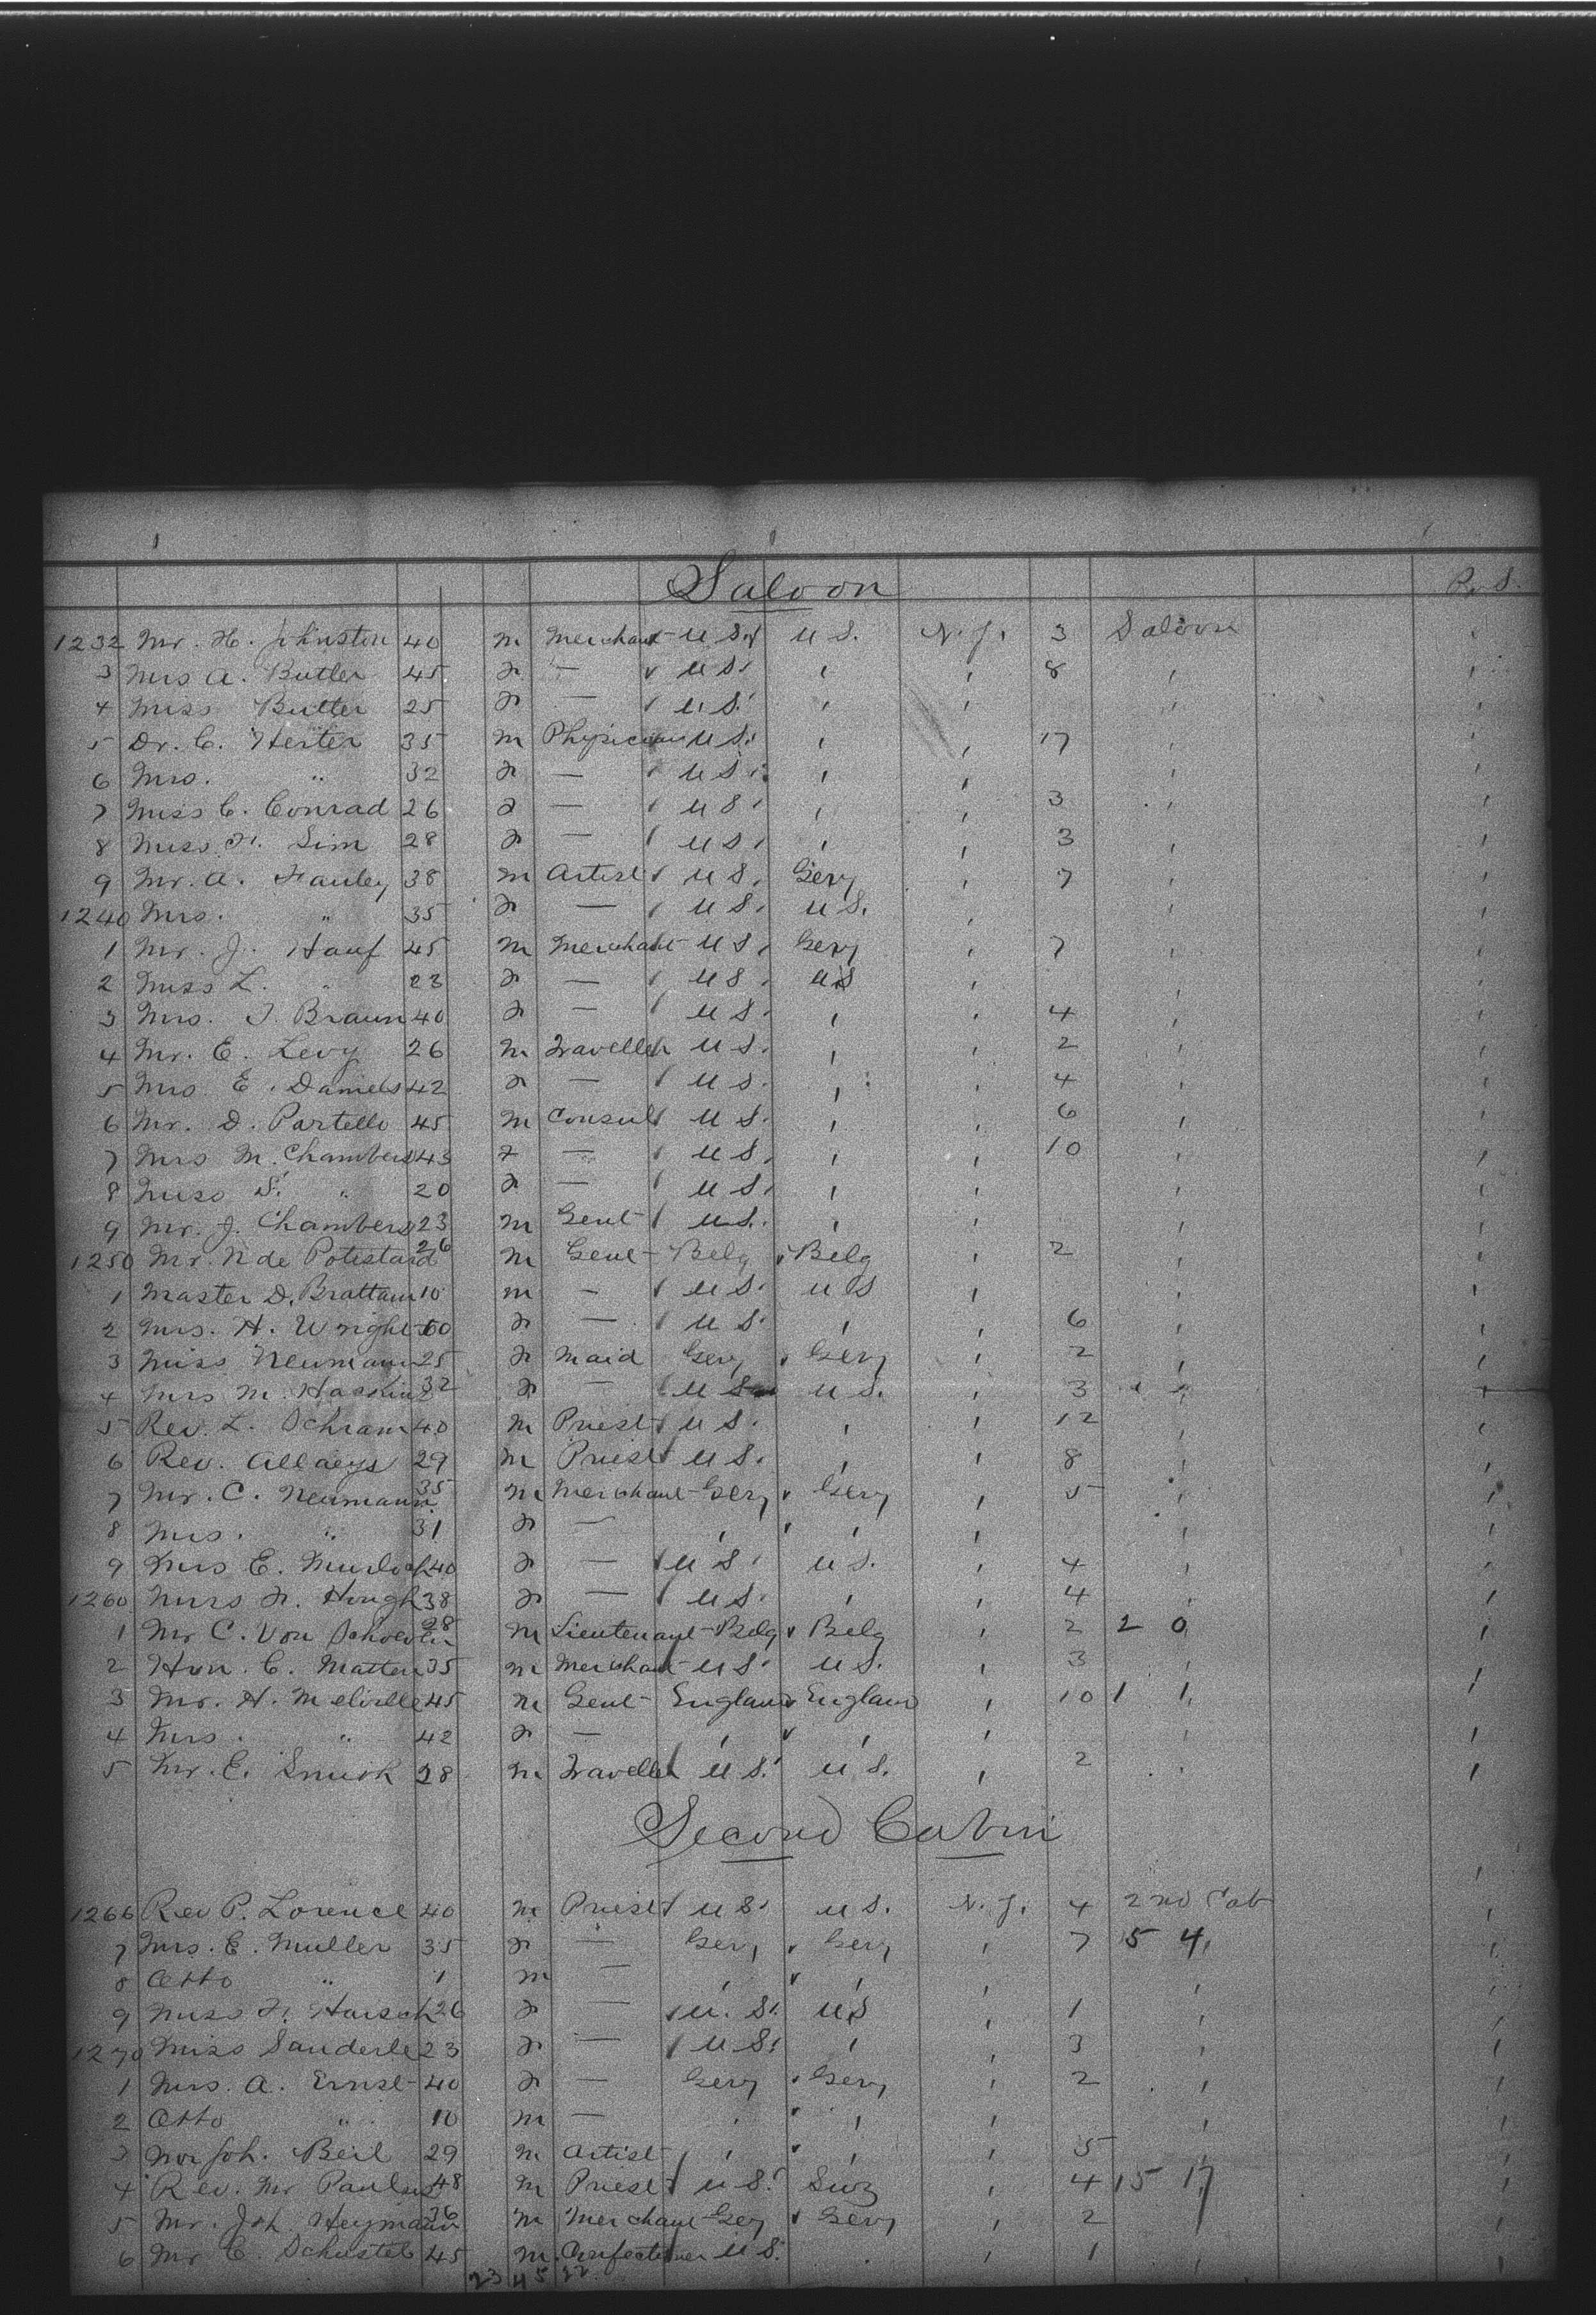 Saloon
P. S.
1232 Mr. H. Johnston 40 m Merchant U S. U S. N. Y. 3 Saloon
3 Mrs A. Butler 45 f — U S. " " 8 "
4 Miss Butler 25 f — U. S. " "
5 Dr. C. Herter 35 m Physician U S. " " 17 "
6 Mrs. " 32 f — U S. " "
7 Miss C. Conrad 26 f — U S. " " 3 "
8 Miss F. Sim 28 f — U S. " " 3 "
9 Mr. A. 38 m Artist U S. Gery " 7 "
1240 Mrs. " 35 f — U S. U S. " "
1 Mr. J. Hauf 45 m Merchant U S. Gery " 7 "
2 Miss L. " 23 f — U S. U S " "
3 Mrs. J. Braun 40 f — U S. " " 4 "
4 Mr. E. Levy 26 m Traveller U S. " " 2 "
5 Mrs E. Daniels 42 f — U S. " " 4
6 Mr. D. Partello 45 m Consul U S. " " 6 "
7 Mrs M. Chambers 43 f — U S. " " 10 "
8 Miss S. " 20 f — U S. " " "
9 Mr. J. Chambers 23 m Gent U.S. " " "
1250 Mr. N de Potestard 26 m Gent Belg Belg " 2 "
1 Master D. Brattam 10 m — U S. U S " "
2 Mrs. H. Wright 50 f — U S. " " 6 "
3 Miss Neumann 25 f Maid Gery Gery " 2 "
4 Mrs M. Haskins 32 f — U S U S. " 3 "
5 Rev. L. Schram 40 m Priest U S. " " 12 "
6 Rev. Allaeys 29 m Priest U S. " " 8 "
7 Mr. C. Neumann 35 m Merchant Gery Gery " 5 "
8 Mrs. " 31 f — " " " "
9 Mrs E. Murdoch 40 f — U S. U S. " 4 "
1260 Mrs F. Hough 38 f — U S. " " 4 "
1 Mr C. Von 28 m Lieutenant Belg Belg " 2 2 0 "
2 Hon. C. Matten 35 m Merchant U S. U S. " 3 "
3 Mr. H. Melville 45 m Gent England England " 10 1 1 "
4 Mrs. " 42 f — " " " "
5 Mr. E. 28 m Traveller U S. U S. " 2 "
Second Cabin
1266 Rev P. Lorence 40 m Priest U S. U S. N. Y. 4 2nd Cab
7 Mrs. E. Muller 35 f — Gery Gery " 7 5 4 "
8 Otto " 1 m — " " " "
9 Miss F. Harsch 26 f — U. S. U S " 1 "
1270 Miss Sanderle 23 f — U S. " " 3 "
1 Mrs. A. Ernst 40 f — Gery Gery " 2 "
2 Otto " 10 m — " " " "
3 Mr Joh. Beil 29 m Artist " " " 5 "
4 Rev. Mr Paulus 48 m Priest U S. Swz " 4 15 17
5 Mr. Joh Heymann 36 m Merchant Gery Gery " 2
6 Mr C. Schuster 45 m Confectioner U S. " 1 "
23 45 22